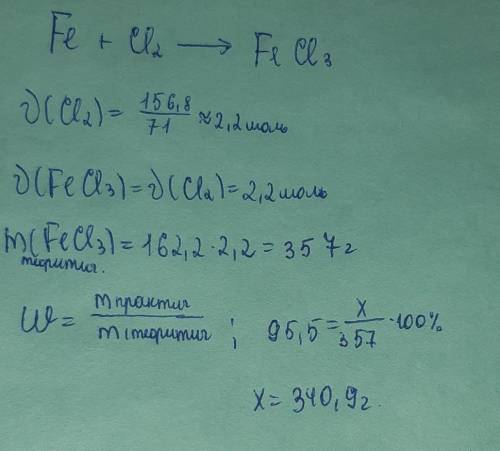 Fe + Cl₂ ⟶ FeCl₃
ν(Cl₂) = 156,8/71 ≈ 2,2 моль
ν(FeCl₃) = ν(Cl₂) = 2,2 моль
m(FeCl₃) = 162,2 · 2,2 = 357 г
теоритич.
W = m практич / m теоритич ; 95,5 = x/357 · 100%
x = 340,9 г.